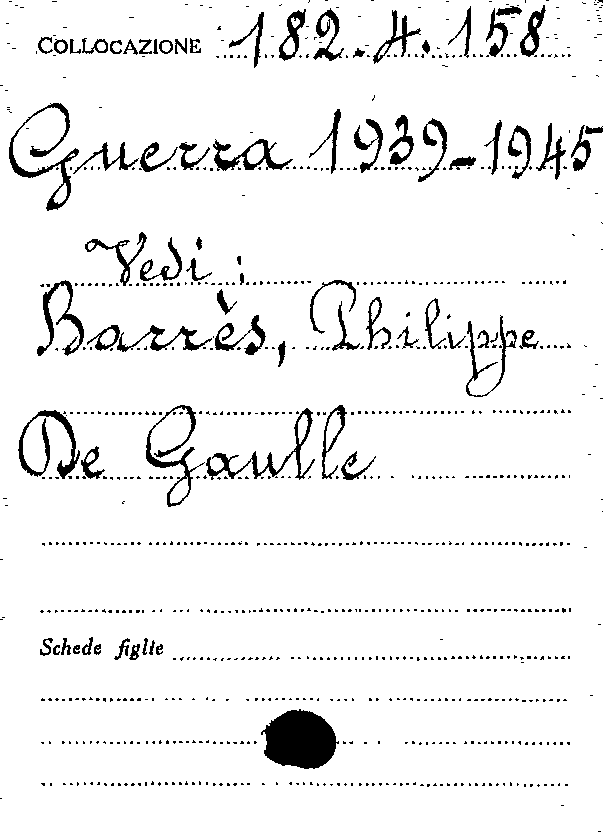 COLLOCAZIONE 182.4.158
Guerra 1939-1945
Vedi:
Barrès, Philippe
De Gaulle
Schede figlie